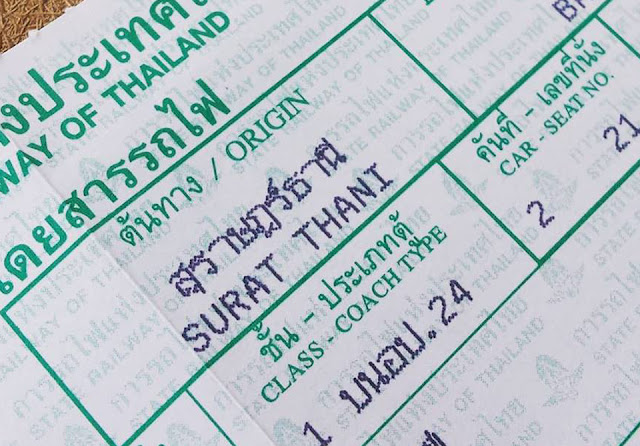 งประเทศ
WAY OF THAILAND
โดยสารรถไฟ
ต้นทาง / ORIGIN
สุราษฎร์ธานี
SURAT THANI
คันที่ - เลขที่นั่ง
CAR - SEAT NO.
2 21
ชั้น - ประเภทตู้
CLASS - COACH TYPE
1 บนอป.24